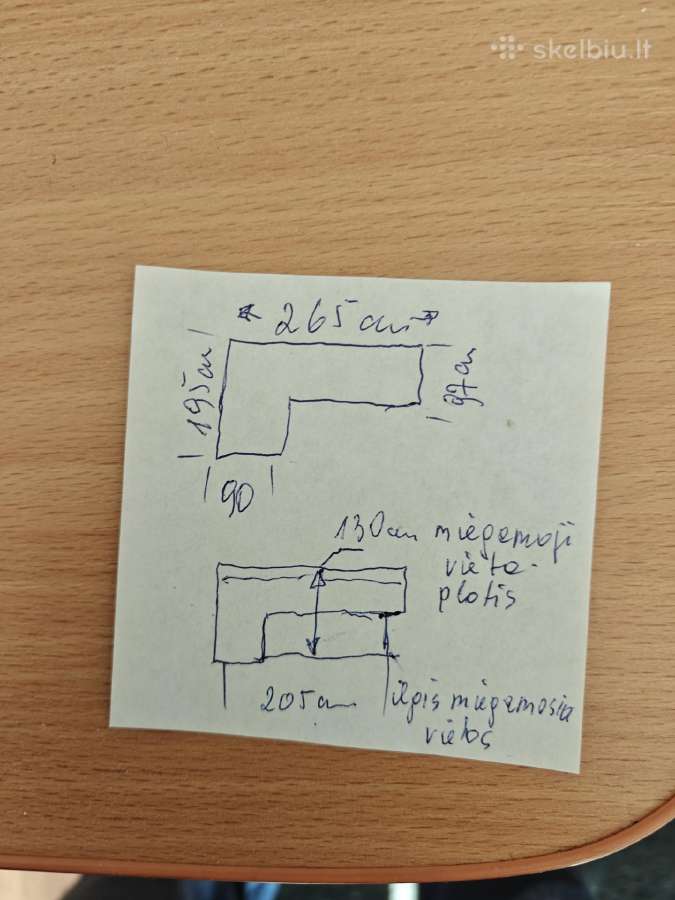 skelbiu.lt
265cm
195cm
97cm
90
130cm miegamoji
vieta-
plotis
205cm
ilgis miegamosia
vietos